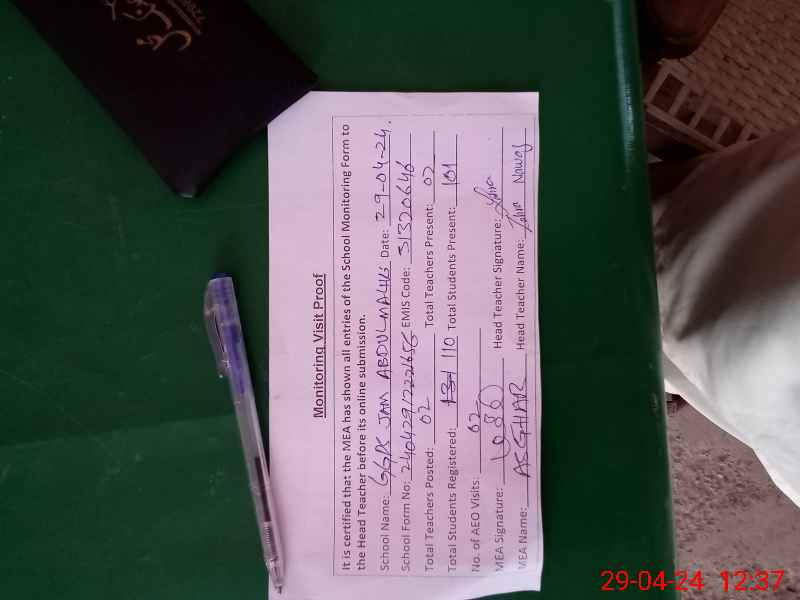 Monitoring Visit Proof
It is certified that the MEA has shown all entries of the School Monitoring Form to
the Head Teacher before its online submission.
School Name: GGPS JAM ABDUL MALIK Date: 29-04-24.
School Form No: EMIS Code: 31320646
Total Teachers Posted: 02 Total Teachers Present: 02
Total Students Registered: 110 Total Students Present: 101
No. of AEO Visits: 02
MEA Signature: Head Teacher Signature:
MEA Name: ASGHAR Head Teacher Name: Nawaz
29-04-24 12:37